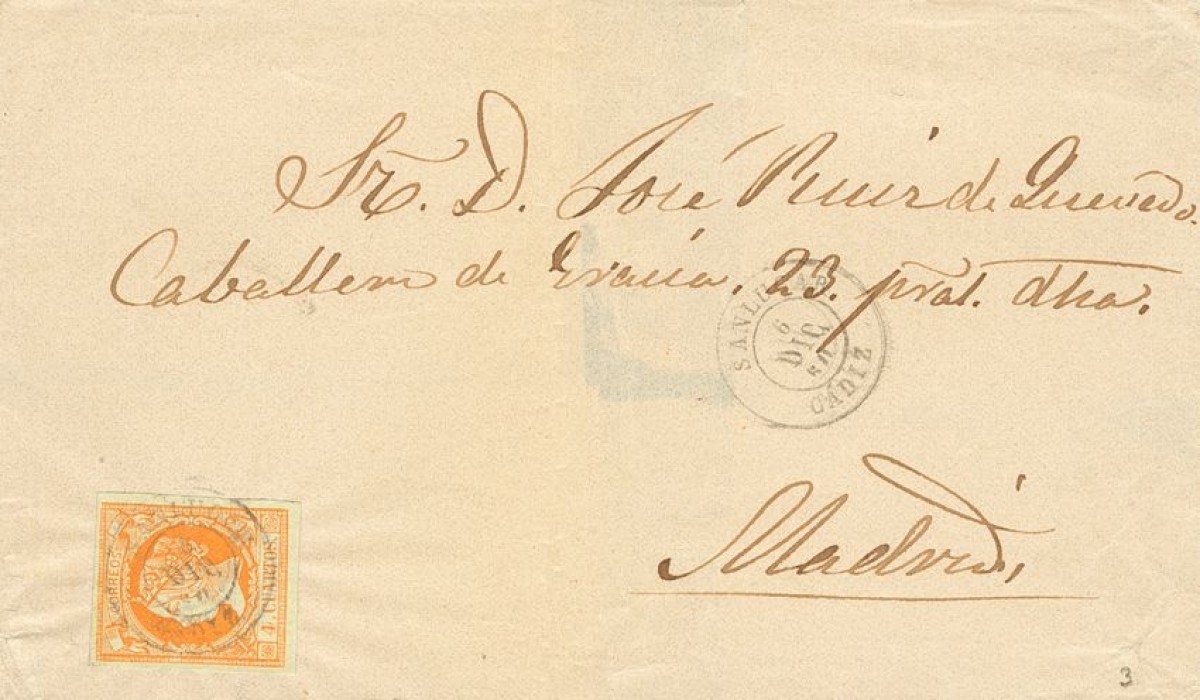 Sr. D. José Ruiz de Quevedo.
Caballero de Gracia. 23. pral. dha.
SANLUCAR
6
DIC
CADIZ
Madrid,
CORREOS
4 CUARTOS
DIC
3